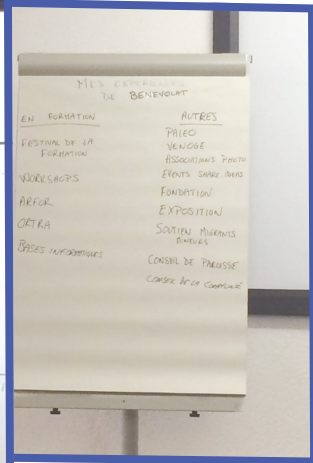 MES EXPERIENCES
DE BENEVOLAT
EN FORMATION
FESTIVAL DE LA
FORMATION
WORKSHOPS
ARFOR
ORTRA
BASES INFORMATIQUES
AUTRES
PALEO
VENOGE
ASSOCIATIONS PHOTO
EVENTS SHARE IDEAS
FONDATION
EXPOSITION
SOUTIEN MIGRANTS
MINEURS
CONSEIL DE PAROISSE
CONSEIL DE LA